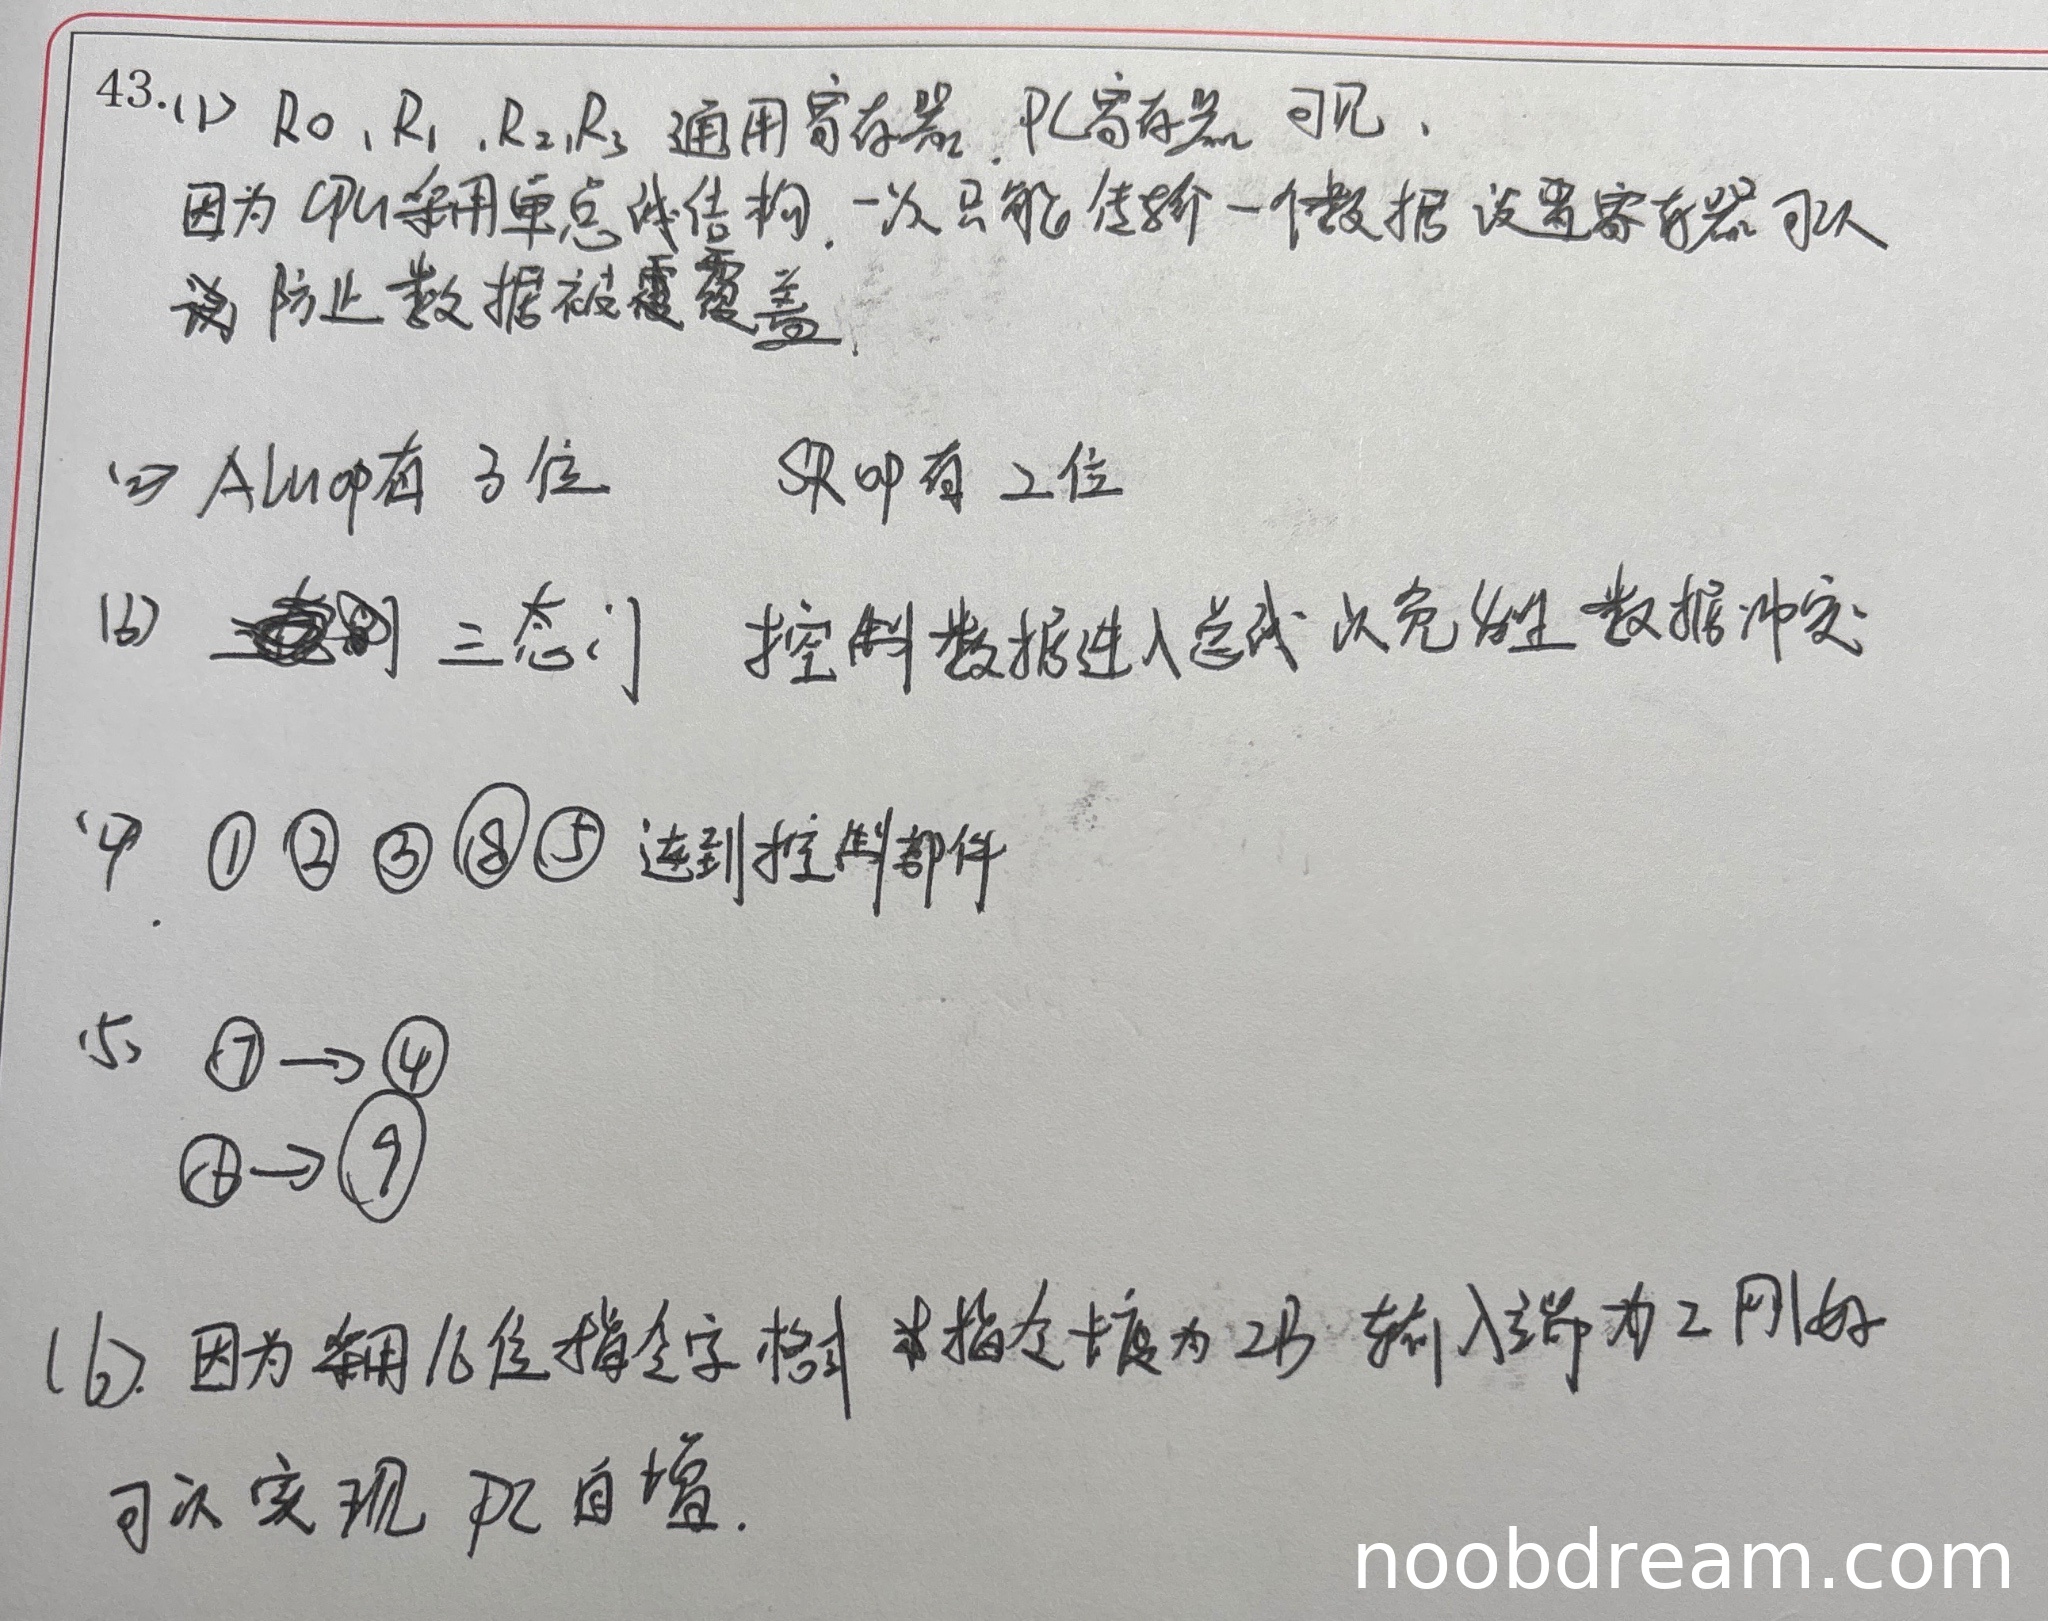 43.(1) R0、R1、R2、R3 通用寄存器、PC寄存器 可见、
因为CPU采用单总线结构、一次只能传输一个数据 设置寄存器可以
防止数据被覆盖、
(2) ALUop有 3位 SRop有 2位
(3) 三态门 控制数据进入总线 以免发生数据冲突
(4) ① ② ③ ⑧ ⑤ 送到控制部件
(5) ⑦ → ④
→ ⑨
(6). 因为采用16位指令字格式 指令长度为2B 输入端为2 刚好
可以实现 PC自增.
noobdream.com